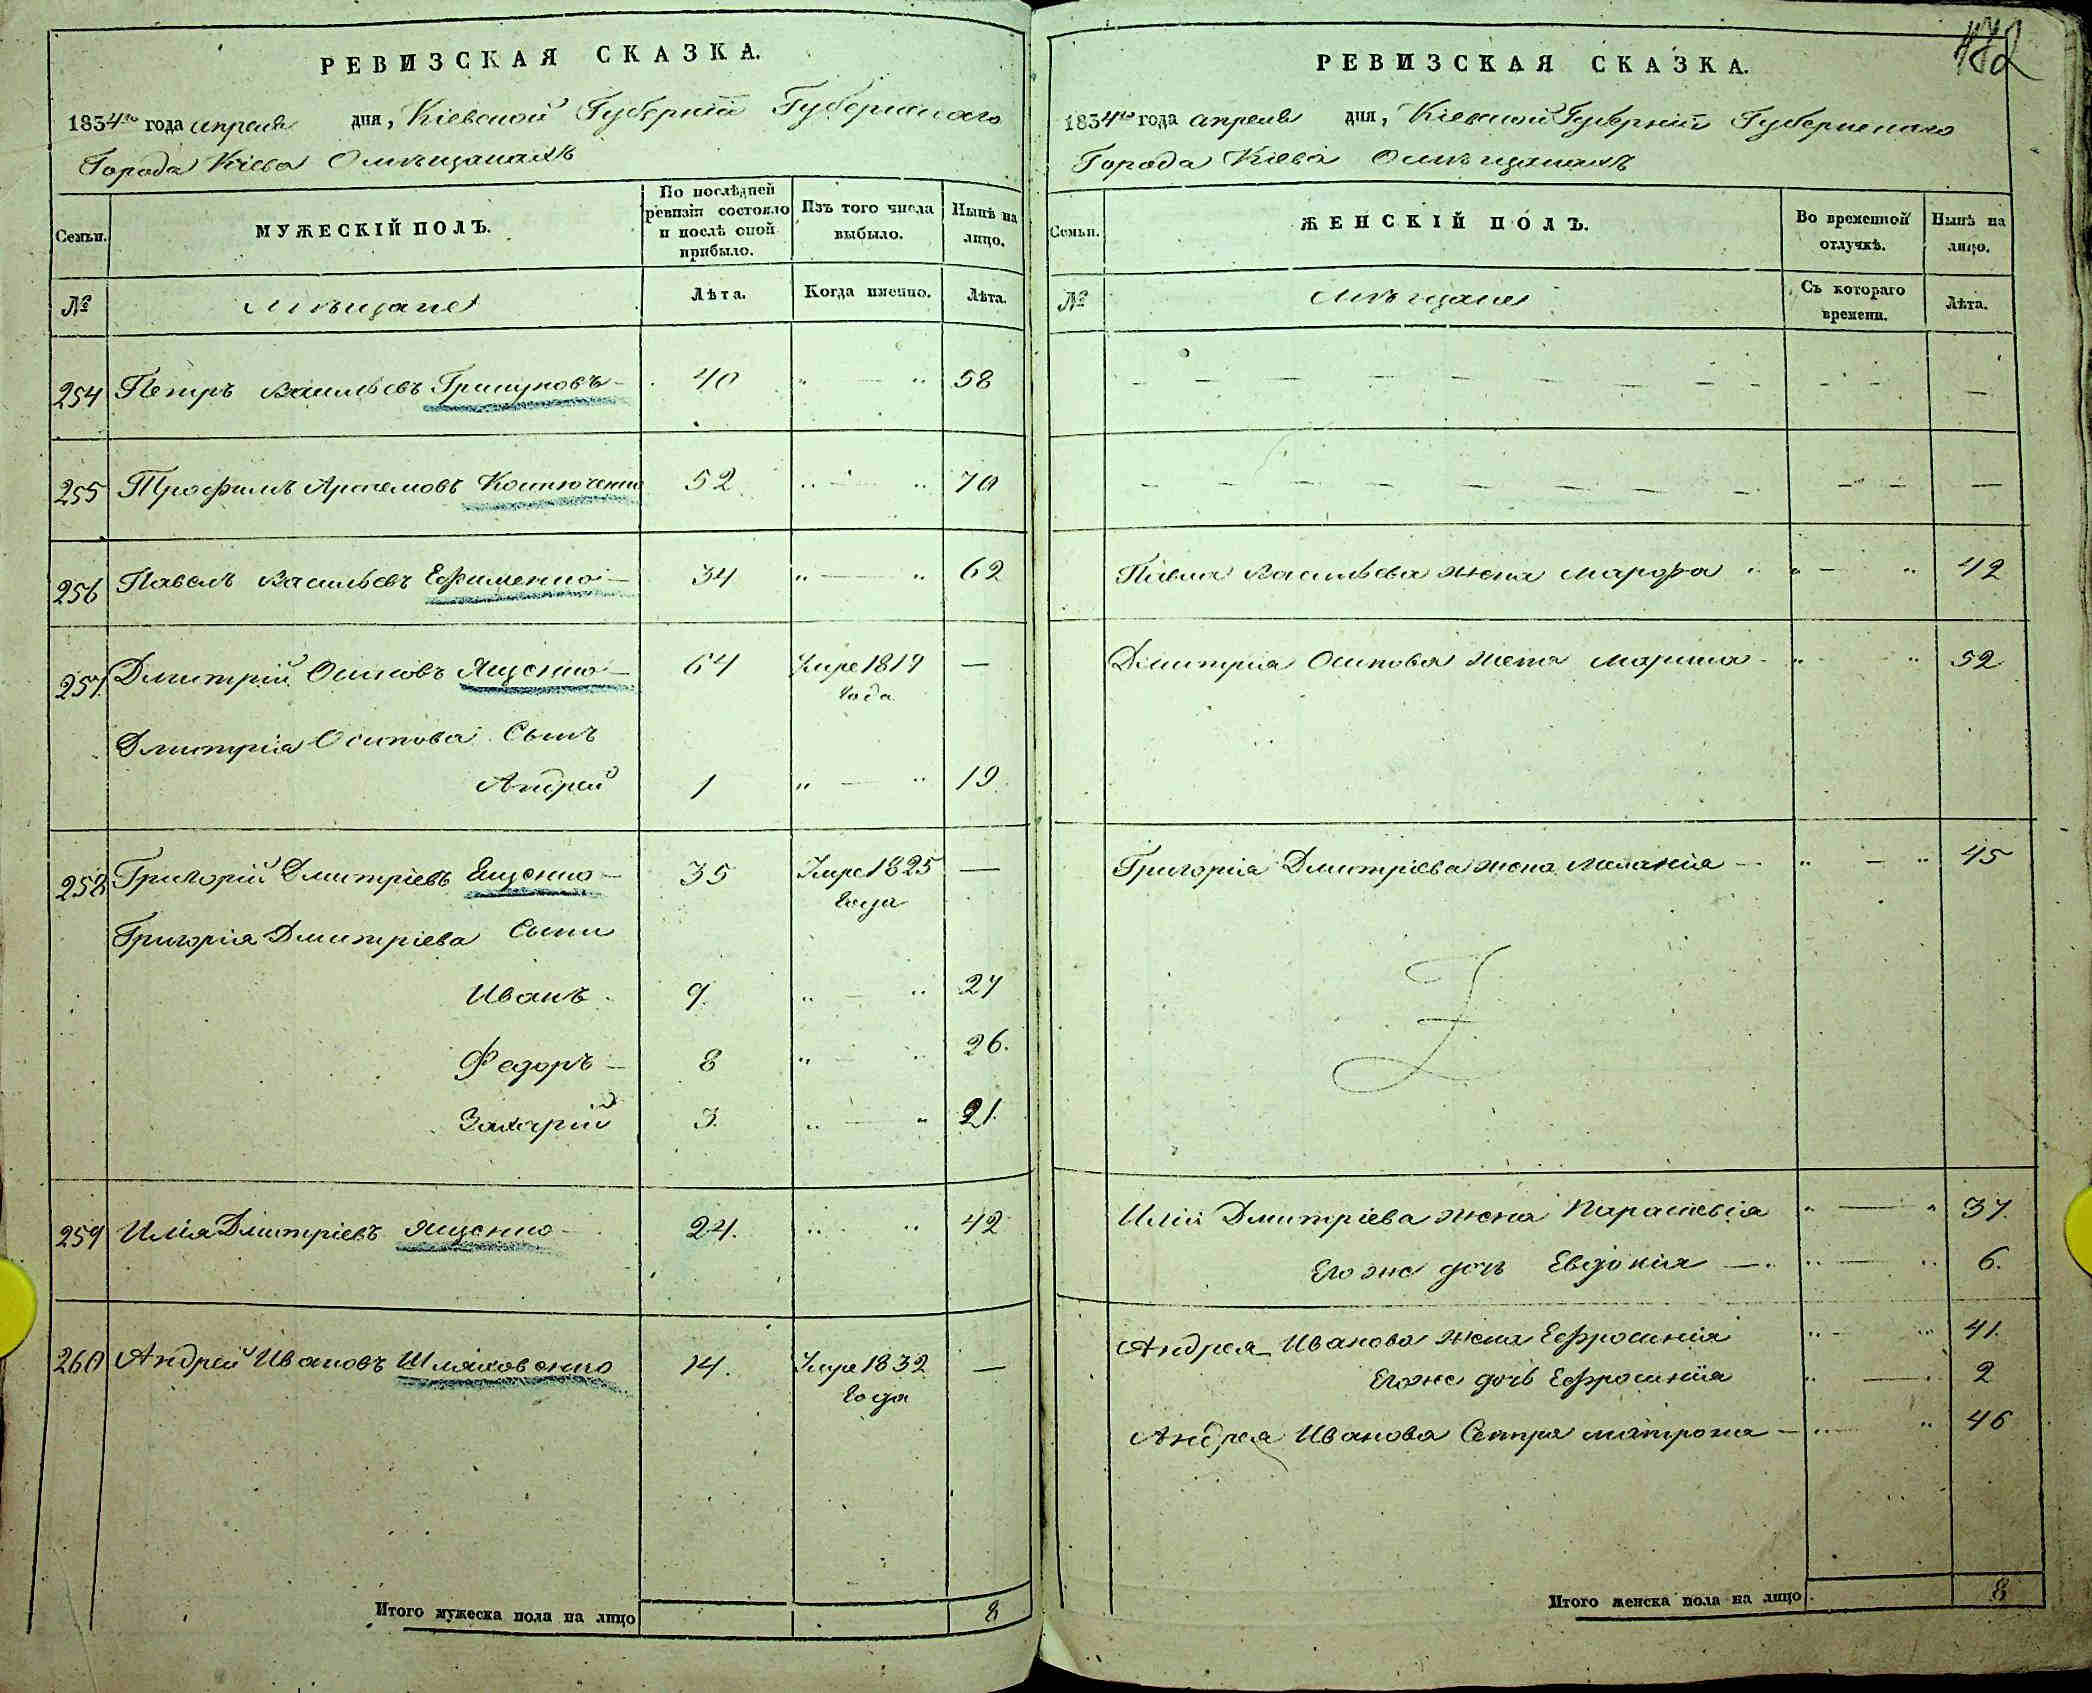 РЕВИЗСКАЯ СКАЗКА.
1834го года апреля дня, Кіевской Губерніи Губернскаго
Города Кіева О мѣщанахъ
Семьи.
МУЖЕСКІЙ ПОЛЪ.
По послѣдней ревизіи состояло и послѣ оной прибыло.
Изъ того числа выбыло.
Нынѣ на лицо.
№
Мѣщане
Лѣта.
Когда именно.
Лѣта.
254 Петръ Васильевъ — 40 " — " 58
255 Трофимъ Артемовъ Костюченко 52 " — " 70
256 Павелъ Васильевъ Ефименко — 34 " — " 62
257 Дмитрій Осиповъ Ященко — 64 Умре 1819 —
года
Дмитрія Осипова Сынъ
Андрей 1 " — " 19
258 Григорій Дмитріевъ Ященко — 35 Умре 1825 —
года
Григорія Дмитріева Сыни
Иванъ 9. " — " 27
Федоръ — 8 " — " 26.
Захарій 3. " — " 21.
259 Илія Дмитріевъ Ященко — 24. " " 42
260 Андрей Ивановъ Шляховенко 14. Умре 1832 —
года
Итого мужеска пола на лицо 8
РЕВИЗСКАЯ СКАЗКА.
1834го года апреля дня, Кіевской Губерніи Губернскаго
Города Кіева О мѣщанахъ
Семьи.
ЖЕНСКІЙ ПОЛЪ.
Во временной отлучкѣ.
Нынѣ на лицо.
№
Мѣщане
Съ котораго времени.
Лѣта.
— — — — — — — — — — —
— — — — — — — — — — —
Павла Васильева жена Марфа " — " 42
Дмитрія Осипова жена Марина — " " 52
Григорія Дмитріева жена Меланія — " — " 45
Иліи Дмитріева жена Параскевія " — " 37.
Его же дочь Евдокія — " — " 6.
Андрея Иванова жена Ефросинія " — " 41.
Его же дочь Ефросинія " — " 2
Андрея Иванова Сестра Матрона — " " 46
Итого женска пола на лицо 8